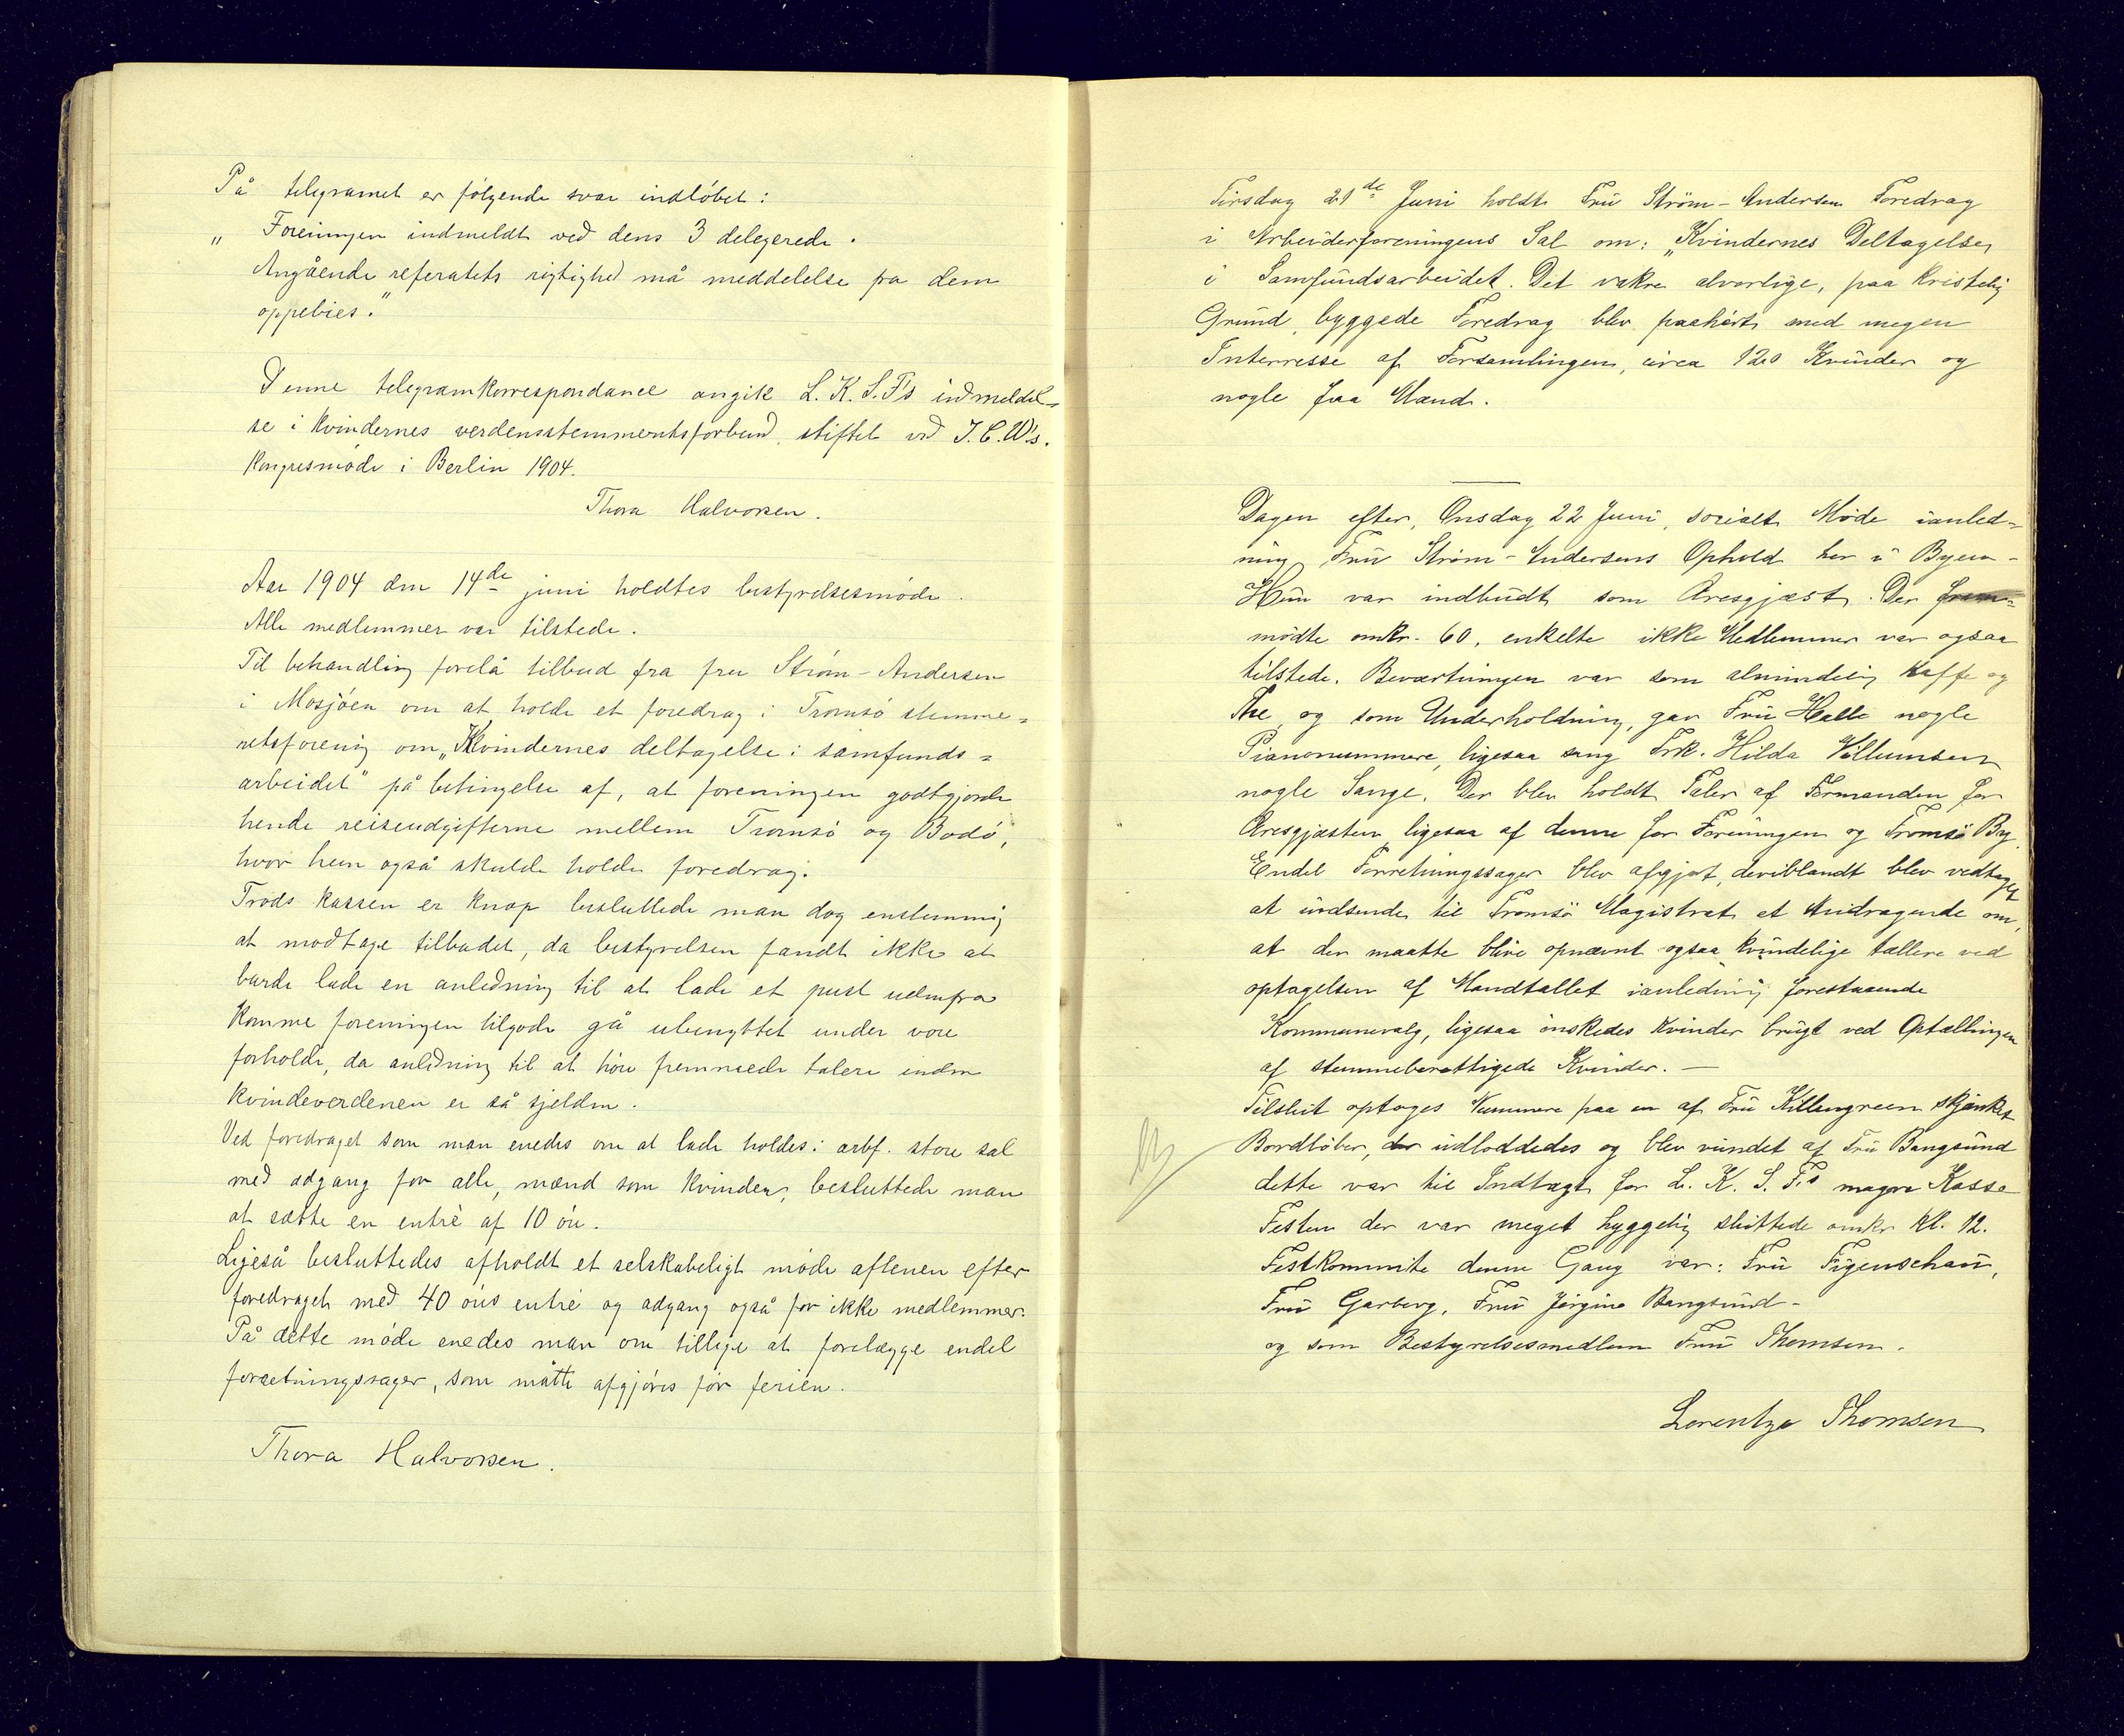 På telegramet er følgende svar indløbet:
„ Foreningen indmeldt ved dens 3 delegerede.
Angående referatets rigtighed må meddelelse fra dem
oppebies."
Denne telegramkorrespondance angik L. K. S. F's indmeldel=
se i kvindernes verdensstemmeretsforbund, stiftet ved I. C. W's.
Kongresmøde i Berlin 1904.
Thora Halvorsen.
Aar 1904 den 14de juni holdtes bestyrelsesmøde.
Alle medlemmer var tilstede.
Til behandling forelå tilbud fra fru Strøm-Andersen
i Mosjøen om at holde et foredrag i Tromsø stemme=
retsforenig om „Kvindernes deltagelse i samfunds=
arbeidet" på betingelse af, at foreningen godtgjorde
hende reiseudgifterne mellem Tromsø og Bodø,
hvor hun også skulde holde foredrag.
Trods kassen er knap besluttede man dog enstemmig
at modtage tilbudet, da bestyrelsen fandt ikke at
burde lade en anledning til at lade et pust udenfra
komme foreningen tilgode gå ubenyttet under vore
forholde, da anledning til at høre fremmede talere inden
kvindeverdenen er så sjelden.
Ved foredraget som man enedes om at lade holdes i arbf. store sal
med adgang for alle, mænd som kvinder, besluttede man
at sætte en entrè af 10 øre.
Ligeså besluttedes afholdt et selskabeligt møde aftenen efter
foredraget med 40 øres entré og adgang også for ikke medlemmer.
På dette møde enedes man om tillige at forelægge endel
forretningssager, som måtte afgjøres før ferien.
Thora Halvorsen.
Tirsdag 21de Juni holdt Fru Strøm-Andersen Foredrag
i Arbeiderforeningens Sal om: „Kvindernes Deltagelse
i Samfundsarbeidet. Det vakre alvorlige, paa kristelig
Grund byggede Foredrag blev paahørt med megen
Interresse af Forsamlingen, circa 120 Kvinder og
nogle faa Mænd.
Dagen efter, Onsdag 22 Juni, socialt Møde ianled=
ning Fru Strøm-Andersens Ophold her i Byen-
Hun var indbudt som Æresgjæst. Der frem=
mødte omkr. 60, enkelte ikke Medlemmer var ogsaa
tilstede. Beværtningen var som almindelig Kaffe og
The og som Underholdning, gav Fru Halle nogle
Pianonummere, ligesaa sang Frk. Hilda Villumsen
nogle Sange. Der blev holdt Taler af Formanden for
Æresgjæsten ligesaa af denne for Foreningen og Tromsø By.
Endel Forretningssager blev afgjort, deriblandt blev vedtaget
at indsende til Tromsø Magistrat et Andragende om,
at der maatte blive opnævnt ogsaa kvindelige tællere ved
optagelsen af Mandtallet ianledning forestaaende
Kommunevalg, ligesaa ønskedes Kvinder brugt ved Optællingen
af stemmeberettigede Kvinder. —
Tilslut optoges Nummere paa en af Fru Killengreen skjænket
Bordløber, der udloddedes og blev vundet af Fru Bangsund
dette var til Indtægt for L. K. S. F's magre Kasse
Festen der var meget hyggelig sluttede omkr kl. 12.
Festkommite denne Gang var: Fru Figenschau,
Fru Garberg, Fru Jørgine Bangsund-
og som Bestyrelsesmedlem Fru Thomsen.
Lorentze Thomsen